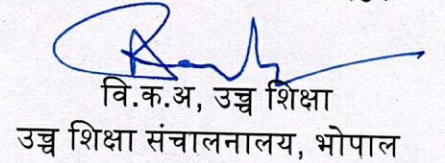 वि.क.अ, उच्च शिक्षा
उच्च शिक्षा संचालनालय, भोपाल